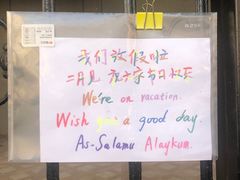 我们放假啦
二月见 祝大家节日快乐
We're on vacation.
Wish you a good day.
As-Salamu Alaykum.